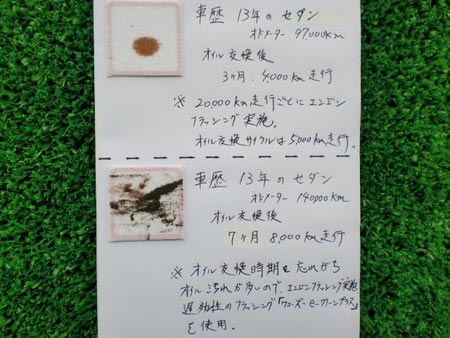 車歴 13年のセダン
オドメーター 97,000km
オイル交換後
3ヶ月、4,000km走行
※ 20,000km走行ごとにエンジン
フラッシング実施。
オイル交換サイクルは5,000km走行。
車歴 13年のセダン
オドメーター 140,000km
オイル交換後
7ヶ月 8,000km走行
※ オイル交換時期を忘れがち
オイルよごれが多いので、エンジンフラッシング実施
遅効性のフラッシング「
を使用。